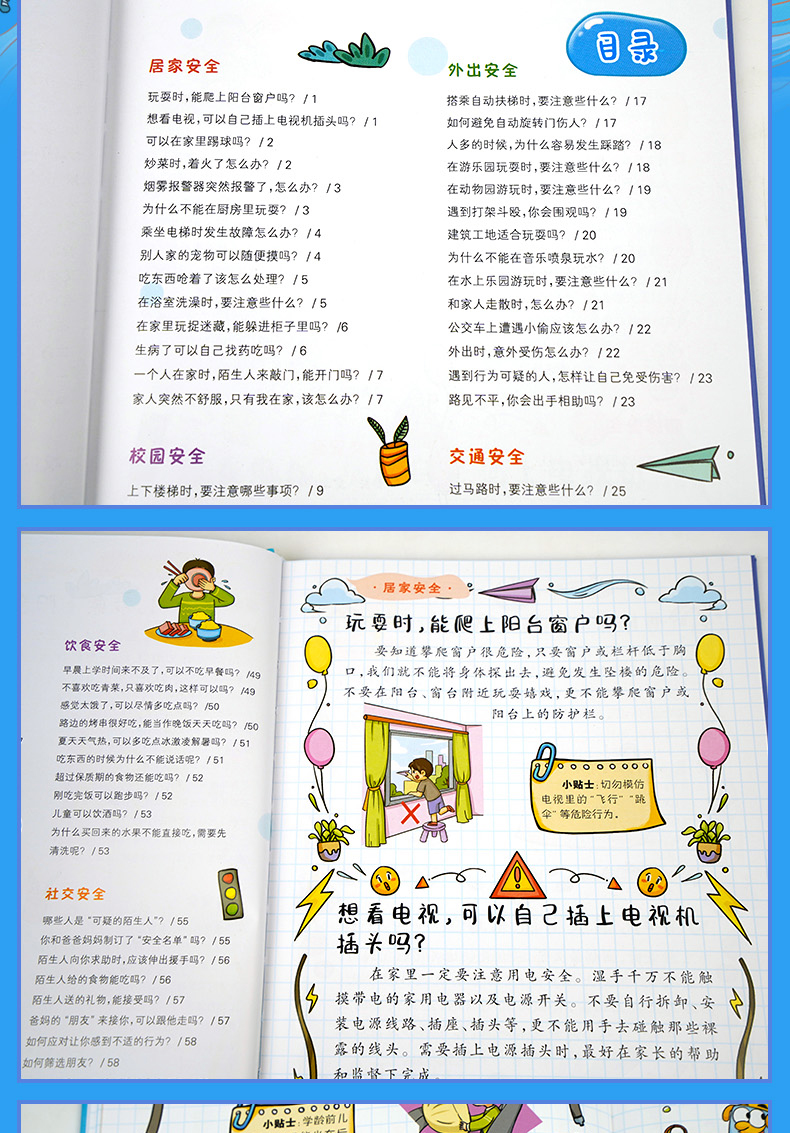 目录
居家安全
玩耍时,能爬上阳台窗户吗? / 1
想看电视,可以自己插上电视机插头吗? / 1
可以在家里踢球吗? / 2
炒菜时,着火了怎么办? / 2
烟雾报警器突然报警了,怎么办? / 3
为什么不能在厨房里玩耍? / 3
乘坐电梯时发生故障怎么办? / 4
别人家的宠物可以随便摸吗? / 4
吃东西呛着了该怎么处理? / 5
在浴室洗澡时,要注意些什么? / 5
在家里玩捉迷藏,能躲进柜子里吗? /6
生病了可以自己找药吃吗? / 6
一个人在家时,陌生人来敲门,能开门吗? / 7
家人突然不舒服,只有我在家,该怎么办? / 7
校园安全
上下楼梯时,要注意哪些事项? / 9
外出安全
搭乘自动扶梯时,要注意些什么? / 17
如何避免自动旋转门伤人? / 17
人多的时候,为什么容易发生踩踏? / 18
在游乐园玩耍时,要注意些什么? / 18
在动物园游玩时,要注意些什么? / 19
遇到打架斗殴,你会围观吗? / 19
建筑工地适合玩耍吗? / 20
为什么不能在音乐喷泉玩水? / 20
在水上乐园游玩时,要注意些什么? / 21
和家人走散时,怎么办? / 21
公交车上遭遇小偷应该怎么办? / 22
外出时,意外受伤怎么办? / 22
遇到行为可疑的人,怎样让自己免受伤害? / 23
路见不平,你会出手相助吗? / 23
交通安全
过马路时,要注意些什么? / 25
饮食安全
早晨上学时间来不及了,可以不吃早餐吗? /49
不喜欢吃青菜,只喜欢吃肉,这样可以吗? /49
感觉太饿了,可以尽情多吃点吗? /50
路边的烤串很好吃,能当作晚饭天天吃吗? /50
夏天天气热,可以多吃点冰激凌解暑吗? / 51
吃东西的时候为什么不能说话呢? / 51
超过保质期的食物还能吃吗? / 52
刚吃完饭可以跑步吗? / 52
儿童可以饮酒吗? / 53
为什么买回来的水果不能直接吃,需要先
清洗呢? / 53
社交安全
哪些人是“可疑的陌生人”? / 55
你和爸爸妈妈制订了“安全名单”吗? / 55
陌生人向你求助时,应该伸出援手吗? / 56
陌生人给的食物能吃吗? / 56
陌生人送的礼物,能接受吗? / 57
爸妈的“朋友”来接你,可以跟他走吗? / 57
如何应对让你感到不适的行为? / 58
如何筛选朋友? / 58
·居家安全·
玩耍时,能爬上阳台窗户吗?
要知道攀爬窗户很危险,只要窗户或栏杆低于胸
口,我们就不能将身体探出去,避免发生坠楼的危险。
不要在阳台、窗台附近玩耍嬉戏,更不能攀爬窗户或
阳台上的防护栏。
小贴士:切勿模仿
电视里的“飞行”“跳
伞”等危险行为。
想看电视,可以自己插上电视机
插头吗?
在家里一定要注意用电安全。湿手千万不能触
摸带电的家用电器以及电源开关。不要自行拆卸、安
装电源线路、插座、插头等,更不能用手去碰触那些裸
露的线头。需要插上电源插头时,最好在家长的帮助
和监督下完成。
小贴士:学龄前儿